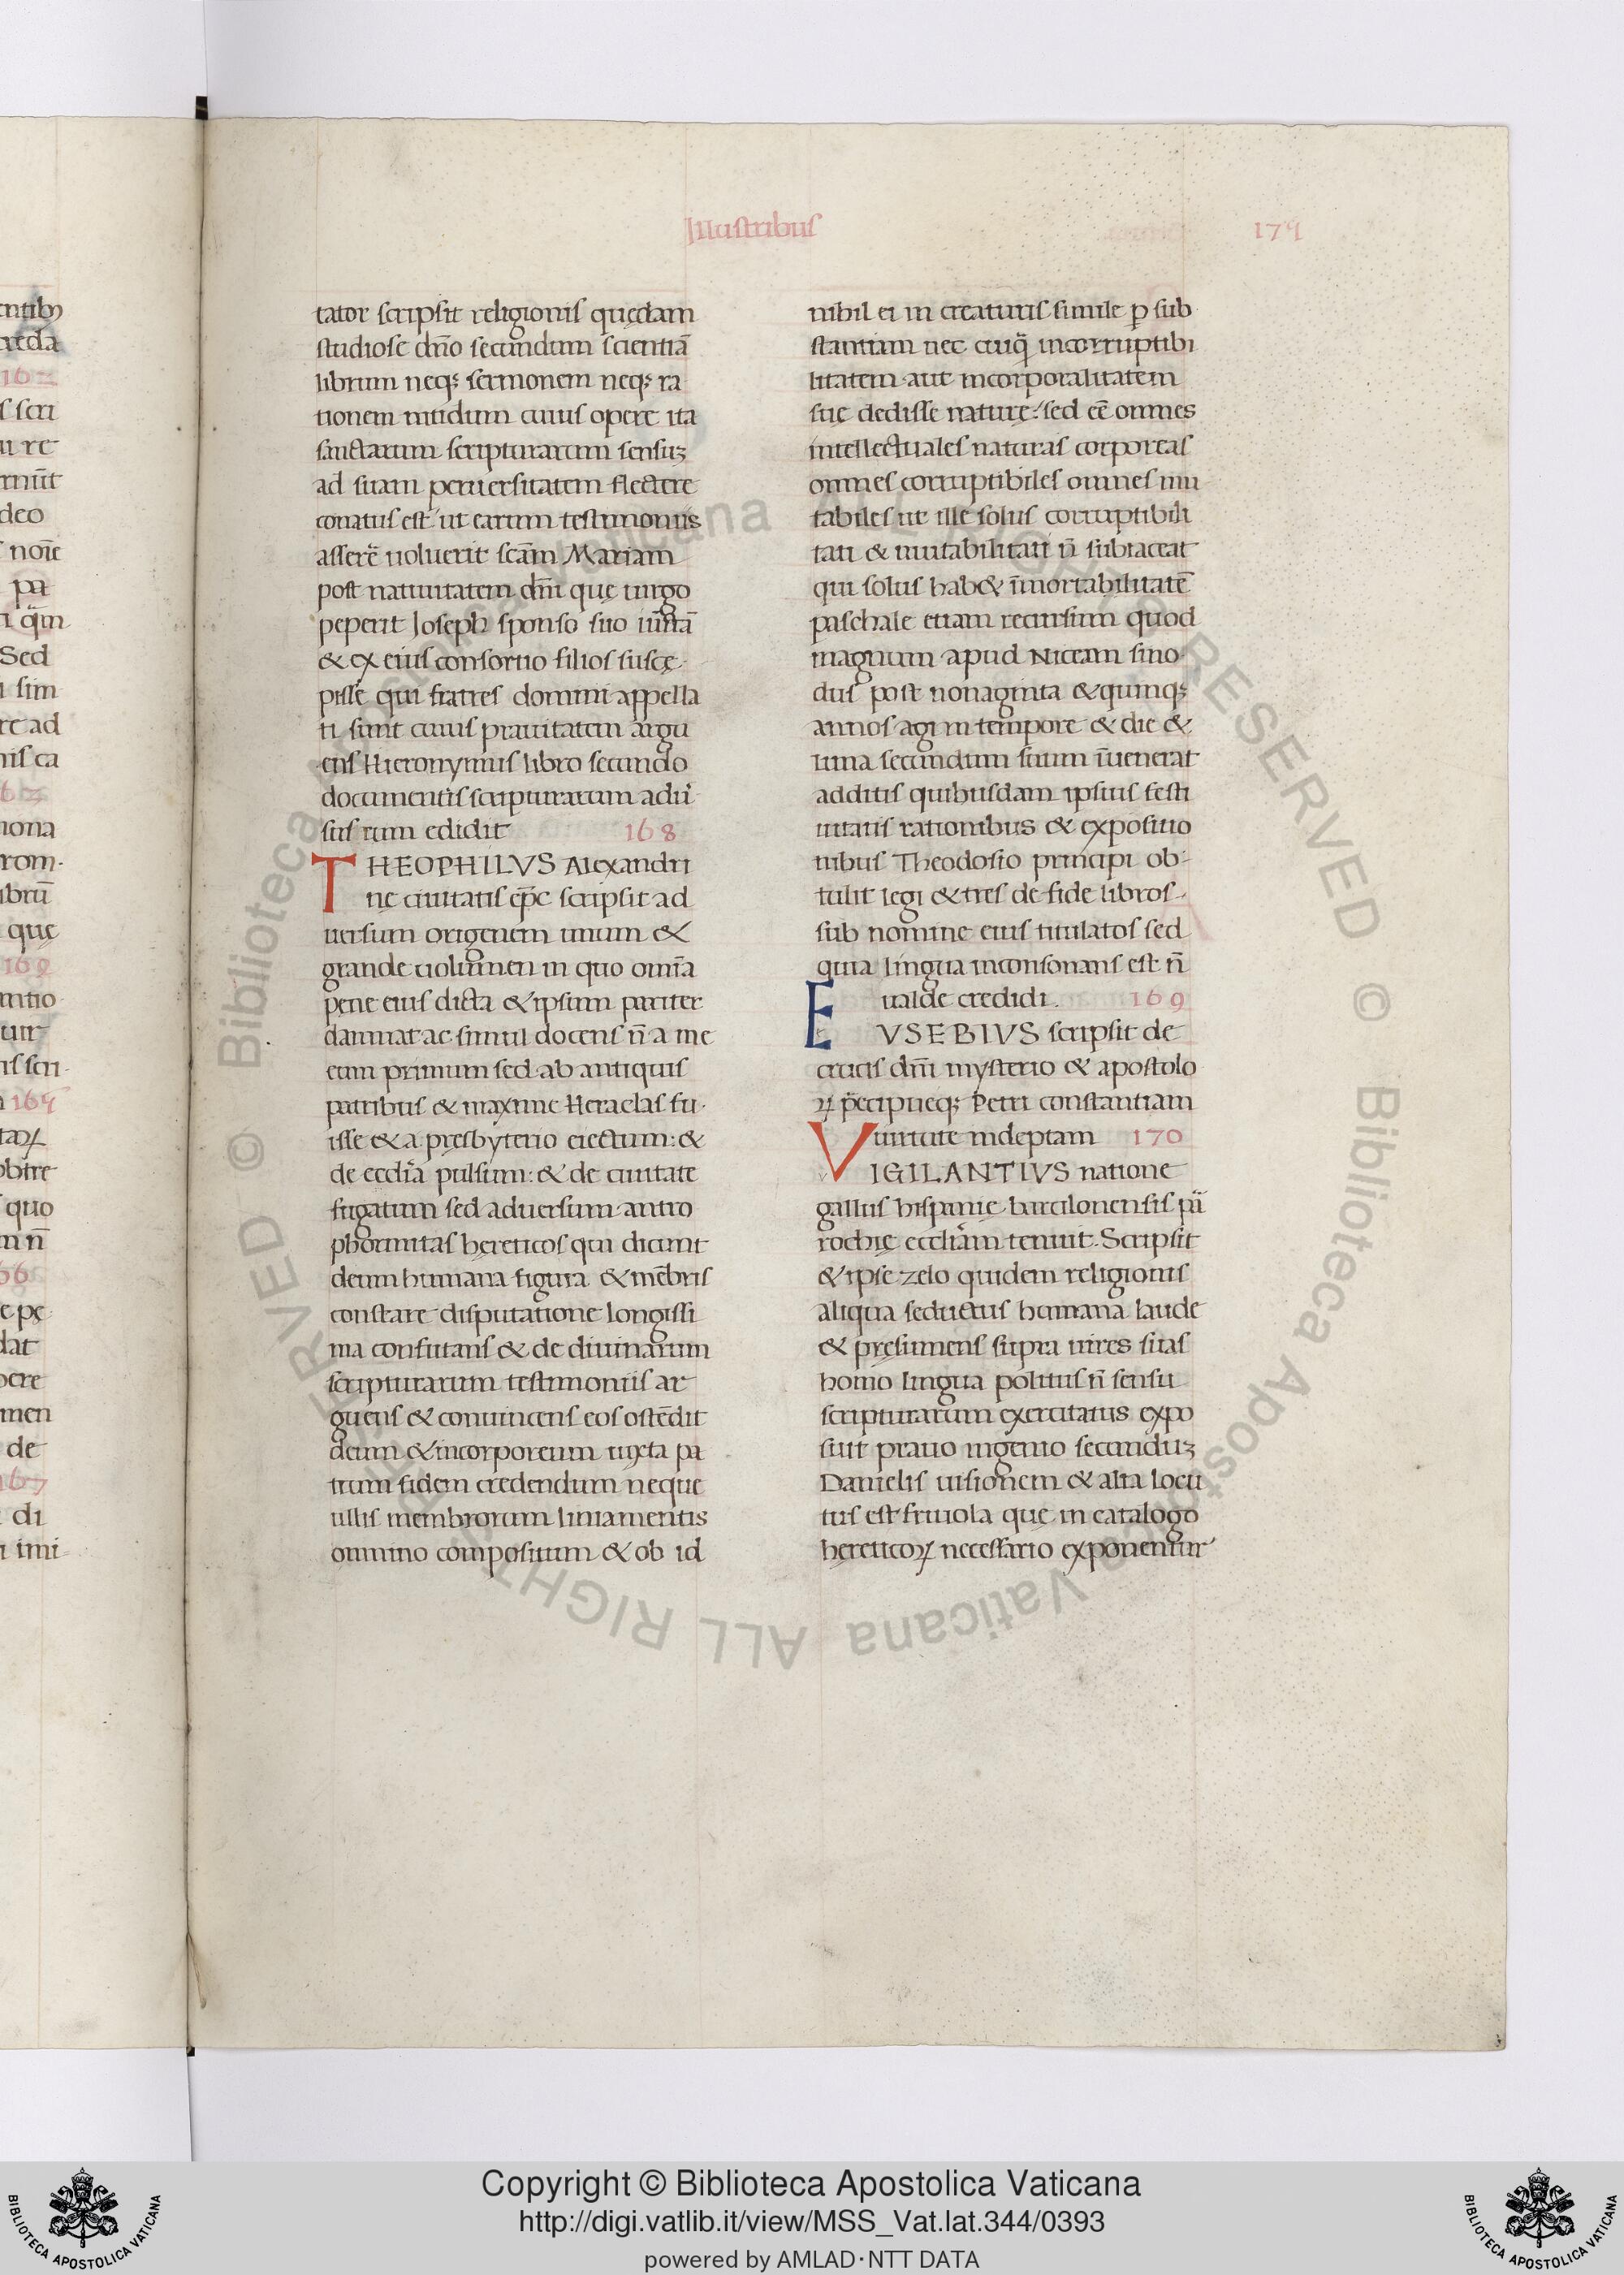 Illustribus
179
tator scripsit religionis quędam
studiose dn̄o secundum scientiā
librum neqꝫ sermonem neqꝫ ra
tionem nitidum cuius opere ita
sanctarum scripturarum sensuꝫ
ad suam peruersitatem flectere
conatus est ut earum testimoniis
asserē uoluerit scām Mariam
post natiuitatem dn̄i quę uirgo
peperit Joseph sponso suo iūctā
& ex eius consortio filios suscę
pisse qui fratres domini appella
ti sunt cuius prauitatem argu
ens Hieronymus libro secundo
documentis scripturarum adū
sus eum edidit 168
THEOPHILVS Alexandri
nę ciuitatis ep̄c scripsit ad
uersum origenem unum &
grande uolumen in quo omīa
pene eius dicta & ipsum pariter
damnat ac simul docens n̄ a me
eum primum sed ab antiquis
patribus & maxime Heraclas fu
isse & a presbyterio eiectum: &
de eccl̄ia pulsum: & de ciuitate
fugatum sed aduersum antro
phormitas hęreticos qui dicunt
deum humana figura & mēbris
constare disputatione longissi
ma confutans & de diuinarum
scripturarum testimoniis ar
guens & conuincens eos ostēdit
deum & incorporeum iuxta pa
trum fidem credendum neque
ullis membrorum liniamentis
omnino compositum & ob id
nihil ei in creaturis simile ꝑ sub
stantiam nec cuiq̄ incorruptibi
litatem aut incorporalitatem
suę dedisse naturę: sed eē omnes
intellectuales naturas corporeas
omnes corruptibiles omnes mu
tabiles ut ille solus corruptibili
tati & mutabilitati n̄ subiaceat
qui solus hab& īmortabilitatē
paschale etiam recursum quod
magnum apud Niceam sino
dus post nonaginta & quinqꝫ
annos agi in tempore & die &
luna secundum suum īuenerat
additis quibusdam ipsius festi
uitatis rationibus & expositio
nibus Theodosio principi ob
tulit legi & tres de fide libros
sub nomine eius titulatos sed
quia lingua inconsonans est n̄
ualde credidi. 169
EVSEBIVS scripsit de
crucis dn̄i mysterio & apostolo
ꝝ p̄cipueqꝫ Petri constantiam
uirtute indeptam 170
VIGILANTIVS natione
gallus hispanię barcilonensis pā
rochię eccl̄iam tenuit. Scripsit
& ipse zelo quidem religionis
aliqua seductus humana laude
& pręsumens supra uires suas
homo lingua politus n̄ sensu
scripturarum exercitatus expo
suit prauo ingenio secunduꝫ
Danielis uisionem & alia locu
tus est friuola quę in catalogo
hereticoꝝ necessario exponentur
Copyright © Biblioteca Apostolica Vaticana
http://digi.vatlib.it/view/MSS_Vat.lat.344/0393
powered by AMLAD·NTT DATA